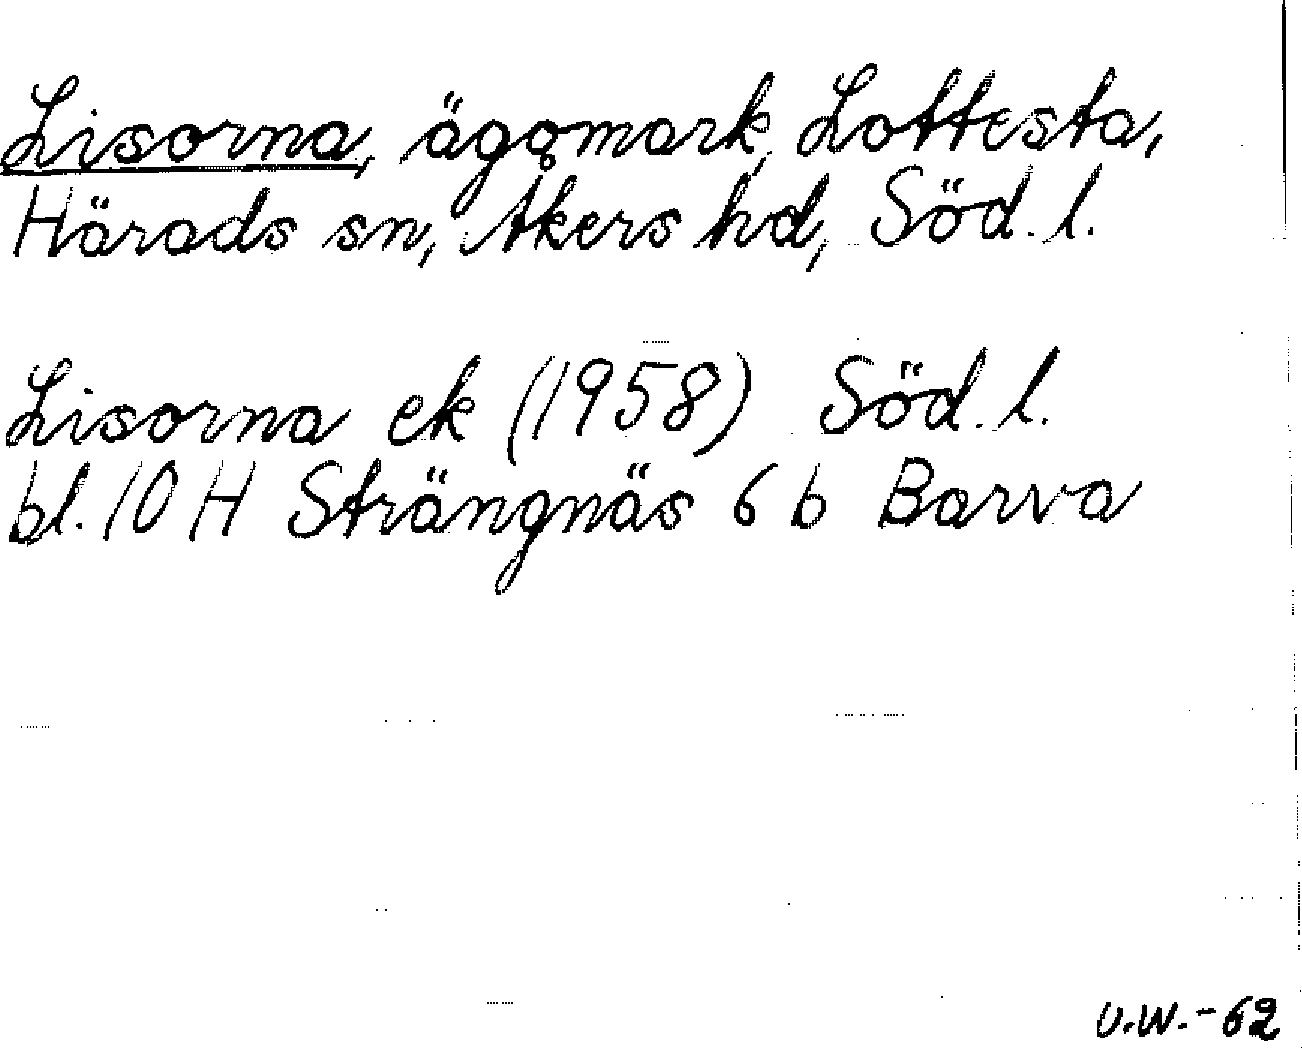 Lisorna, ägomark, Lottesta,
Härads sn, Åkers hd, Söd. l.
Lisorna ek (1958) Söd. l.
bl. 10 H Strängnäs 6 b Barva
U.W. - 62